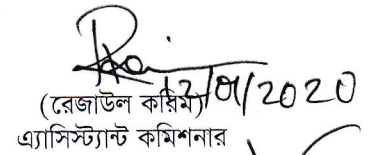 12/01/2020
(রেজাউল করিম)
এ্যাসিস্ট্যান্ট কমিশনার